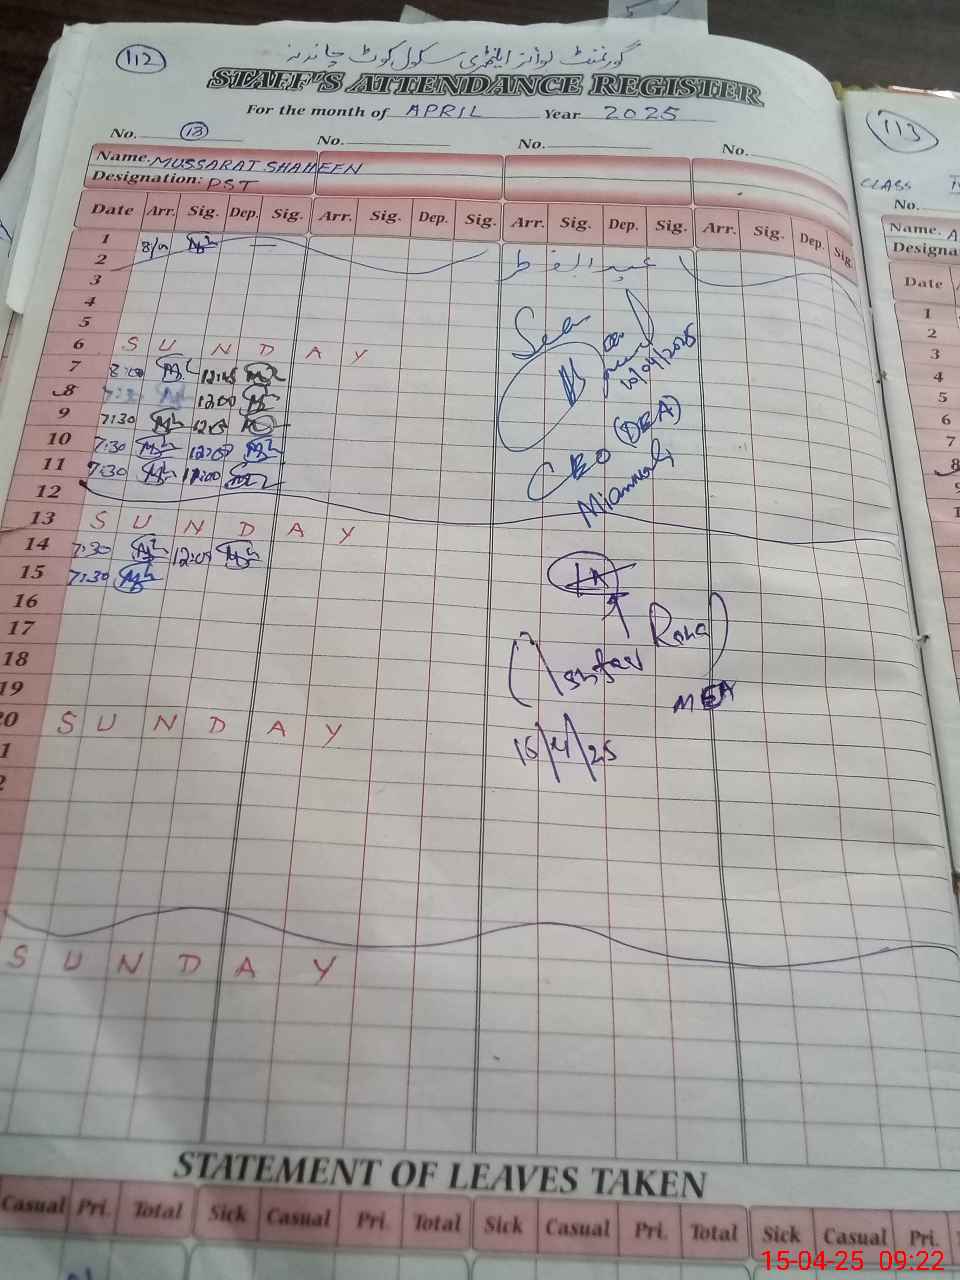 112
گورنمنٹ بوائز ایلیمنٹری سکول کوٹ چاندنہ
STAFF'S ATTENDANCE REGISTER
For the month of APRIL Year 2025
No. 13 No. No. No.
Name. MUSSARAT SHAHEEN
Designation: PST
Date Arr. Sig. Dep. Sig. Arr. Sig. Dep. Sig. Arr. Sig. Dep. Sig. Arr. Sig. Dep. Sig.
1
2 عید الفطر
3
4
5
6 SUNDAY
7 8:00 12:45
8 7:30 12:00
9 7:30
10 7:30 12:00
11 7:30
12
13 SUNDAY
14 7:30 12:00
15 7:30
16
17
18
19
20 SUNDAY
1
2
SUNDAY
Seen
10/04/2025
CEO (DEA)
Mianwali
MEA
15/4/25
STATEMENT OF LEAVES TAKEN
Casual Pri. Total Sick Casual Pri. Total Sick Casual Pri. Total Sick Casual Pri.
113
CLASS
No.
Name. A
Designa
Date
1
2
3
4
5
6
7
8
15-04-25 09:22